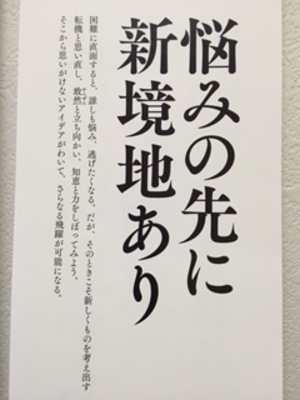 悩みの先に
新境地あり
困難に直面すると、誰しも悩み、逃げたくなる。だが、そのときこそ新しくものを考え出す
転機と思い直し、敢然と立ち向かい、知恵と力をしぼってみよう。
そこから思いがけないアイデアがわいて、さらなる飛躍が可能になる。